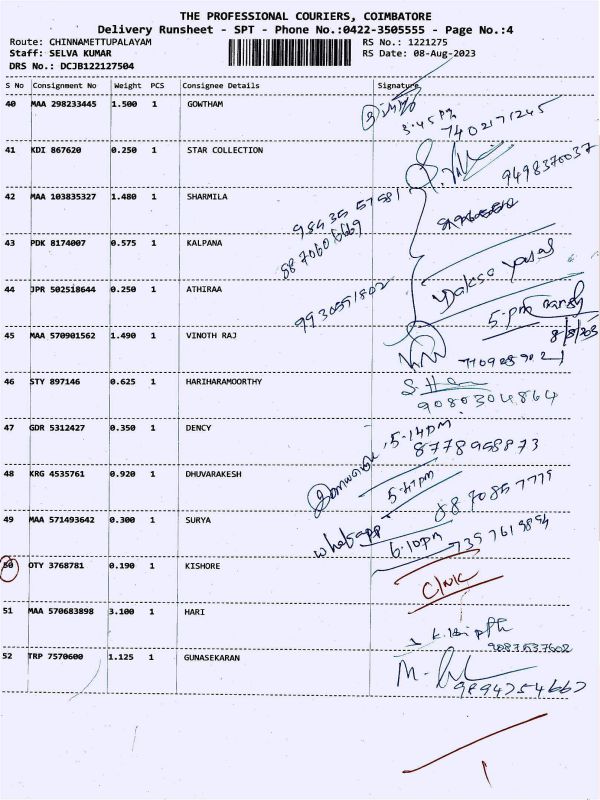 THE PROFESSIONAL COURIERS, COIMBATORE
Delivery Runsheet - SPT - Phone No.:0422-3505555 - Page No.:4
Route: CHINNAMETTUPALAYAM RS No.: 1221275
Staff: SELVA KUMAR RS Date: 08-Aug-2023
DRS No.: DCJB122127504
S No Consignment No Weight PCS Consignee Details Signature
40 MAA 298233445 1.500 1 GOWTHAM
3.45 Pm
7402171245
41 KDI 867620 0.250 1 STAR COLLECTION
9498370037
42 MAA 103835327 1.480 1 SHARMILA
98435 57581
43 PDK 8174007 0.575 1 KALPANA
8870606669
44 JPR 502518644 0.250 1 ATHIRAA
9930551802
5.pm
8/8/203
45 MAA 570901562 1.490 1 VINOTH RAJ
46 STY 897146 0.625 1 HARIHARAMOORTHY
9080304864
47 GDR 5312427 0.350 1 DENCY
5.14pm
8778958873
48 KRG 4535761 0.920 1 DHUVARAKESH
5.41pm
8870857779
49 MAA 571493642 0.300 1 SURYA
whatsapp
6.10pm
7357619894
50 OTY 3768781 0.190 1 KISHORE
51 MAA 570683898 3.100 1 HARI
9087537602
52 TRP 7570600 1.125 1 GUNASEKARAN
9894754667